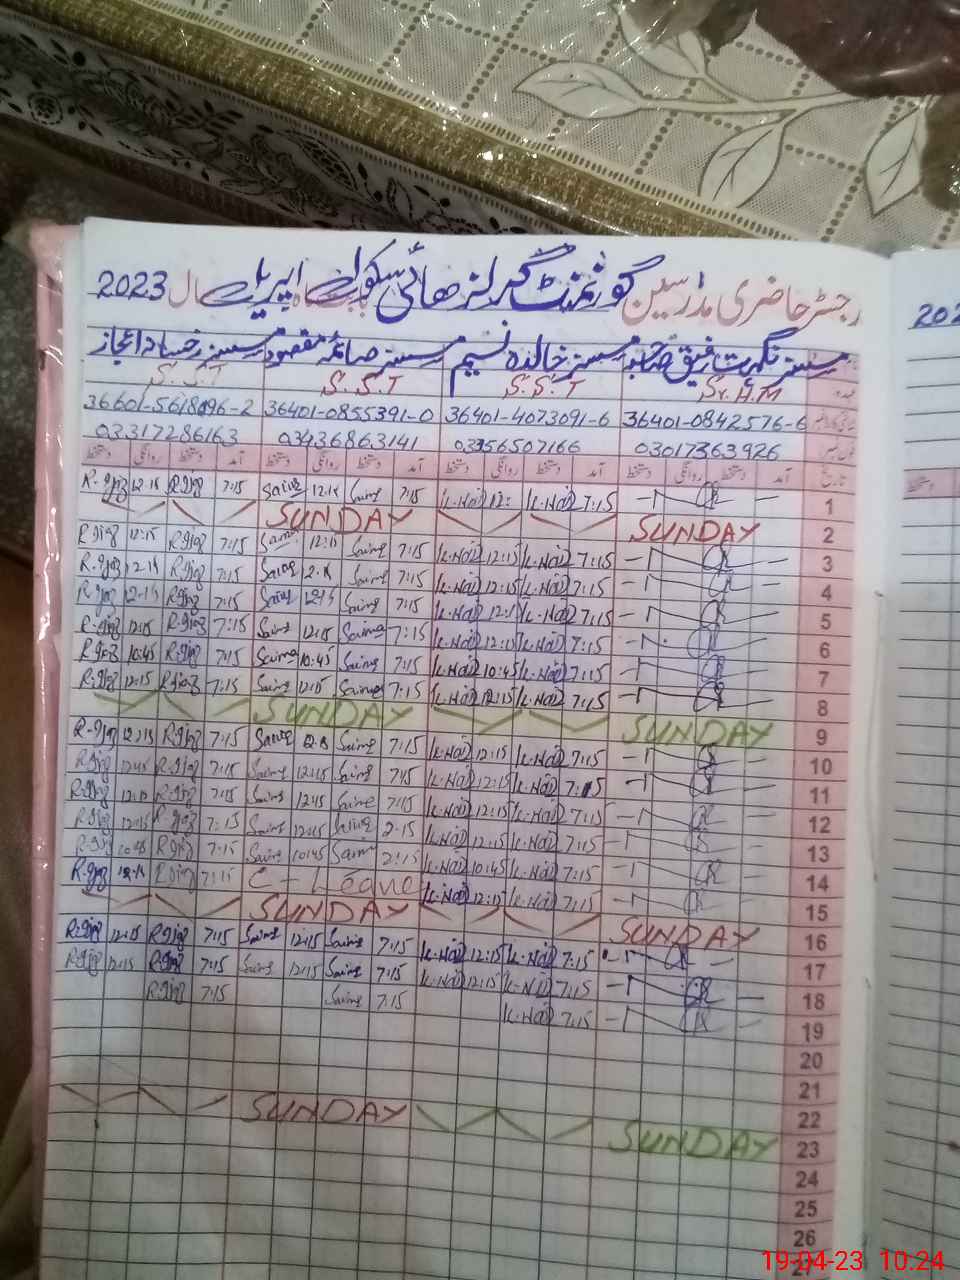 رجسٹر حاضری مدرسین گورنمنٹ گرلز ھائی سکول ماہ اپریل سال 2023
مسز نگہت رفیق صاحبہ مسز خالدہ نسیم مسز صائمہ مقصود مسز رخسانہ اعجاز
Sr. H.M S.S.T S.S.T S.S.T
36401-0842576-6 36401-4073091-6 36401-0855391-0 36601-5618096-2
03017363926 03356507166 03436863141 03317286163
تاریخ آمد دستخط روانگی دستخط آمد دستخط روانگی دستخط آمد دستخط روانگی دستخط آمد دستخط روانگی دستخط
1 7:15 K.Hai 12: K.Hai 7:15 Saima 12:15 Saima 7:15 R.Ijaz 12:15 R.Ijaz
2 SUNDAY SUNDAY
3 7:15 K.Hai 12:15 K.Hai 7:15 Saima 12:15 Saima 7:15 R.Ijaz 12:15 R.Ijaz
4 7:15 K.Hai 12:15 K.Hai 7:15 Saima 12:15 Saima 7:15 R.Ijaz 12:15 R.Ijaz
5 7:15 K.Hai 12:15 K.Hai 7:15 Saima 12:15 Saima 7:15 R.Ijaz 12:15 R.Ijaz
6 7:15 K.Hai 12:15 K.Hai 7:15 Saima 12:15 Saima 7:15 R.Ijaz 12:15 R.Ijaz
7 7:15 K.Hai 10:45 K.Hai 7:15 Saima 10:45 Saima 7:15 R.Ijaz 10:45 R.Ijaz
8 7:15 K.Hai 12:15 K.Hai 7:15 Saima 12:15 Saima 7:15 R.Ijaz 12:15 R.Ijaz
9 SUNDAY SUNDAY
10 7:15 K.Hai 12:15 K.Hai 7:15 Saima 12:15 Saima 7:15 R.Ijaz 12:15 R.Ijaz
11 7:15 K.Hai 12:15 K.Hai 7:15 Saima 12:15 Saima 7:15 R.Ijaz 12:15 R.Ijaz
12 7:15 K.Hai 12:15 K.Hai 7:15 Saima 12:15 Saima 7:15 R.Ijaz 12:15 R.Ijaz
13 7:15 K.Hai 12:15 K.Hai 2:15 Saima 12:15 Saima 7:15 R.Ijaz 12:15 R.Ijaz
14 7:15 K.Hai 10:45 K.Hai 2:15 Saima 10:45 Saima 7:15 R.Ijaz 10:45 R.Ijaz
15 7:15 K.Hai 12:15 K.Hai C-Leave 7:15 R.Ijaz 12:15 R.Ijaz
16 SUNDAY SUNDAY
17 7:15 K.Hai 12:15 K.Hai 7:15 Saima 12:15 Saima 7:15 R.Ijaz 12:15 R.Ijaz
18 7:15 K.Hai 12:15 K.Hai 7:15 Saima 12:15 Saima 7:15 R.Ijaz 12:15 R.Ijaz
19 7:15 K.Hai 7:15 Saima 7:15 R.Ijaz
20
21
22
23 SUNDAY SUNDAY
24
25
26
27
202
دستخط
19-04-23 10:24